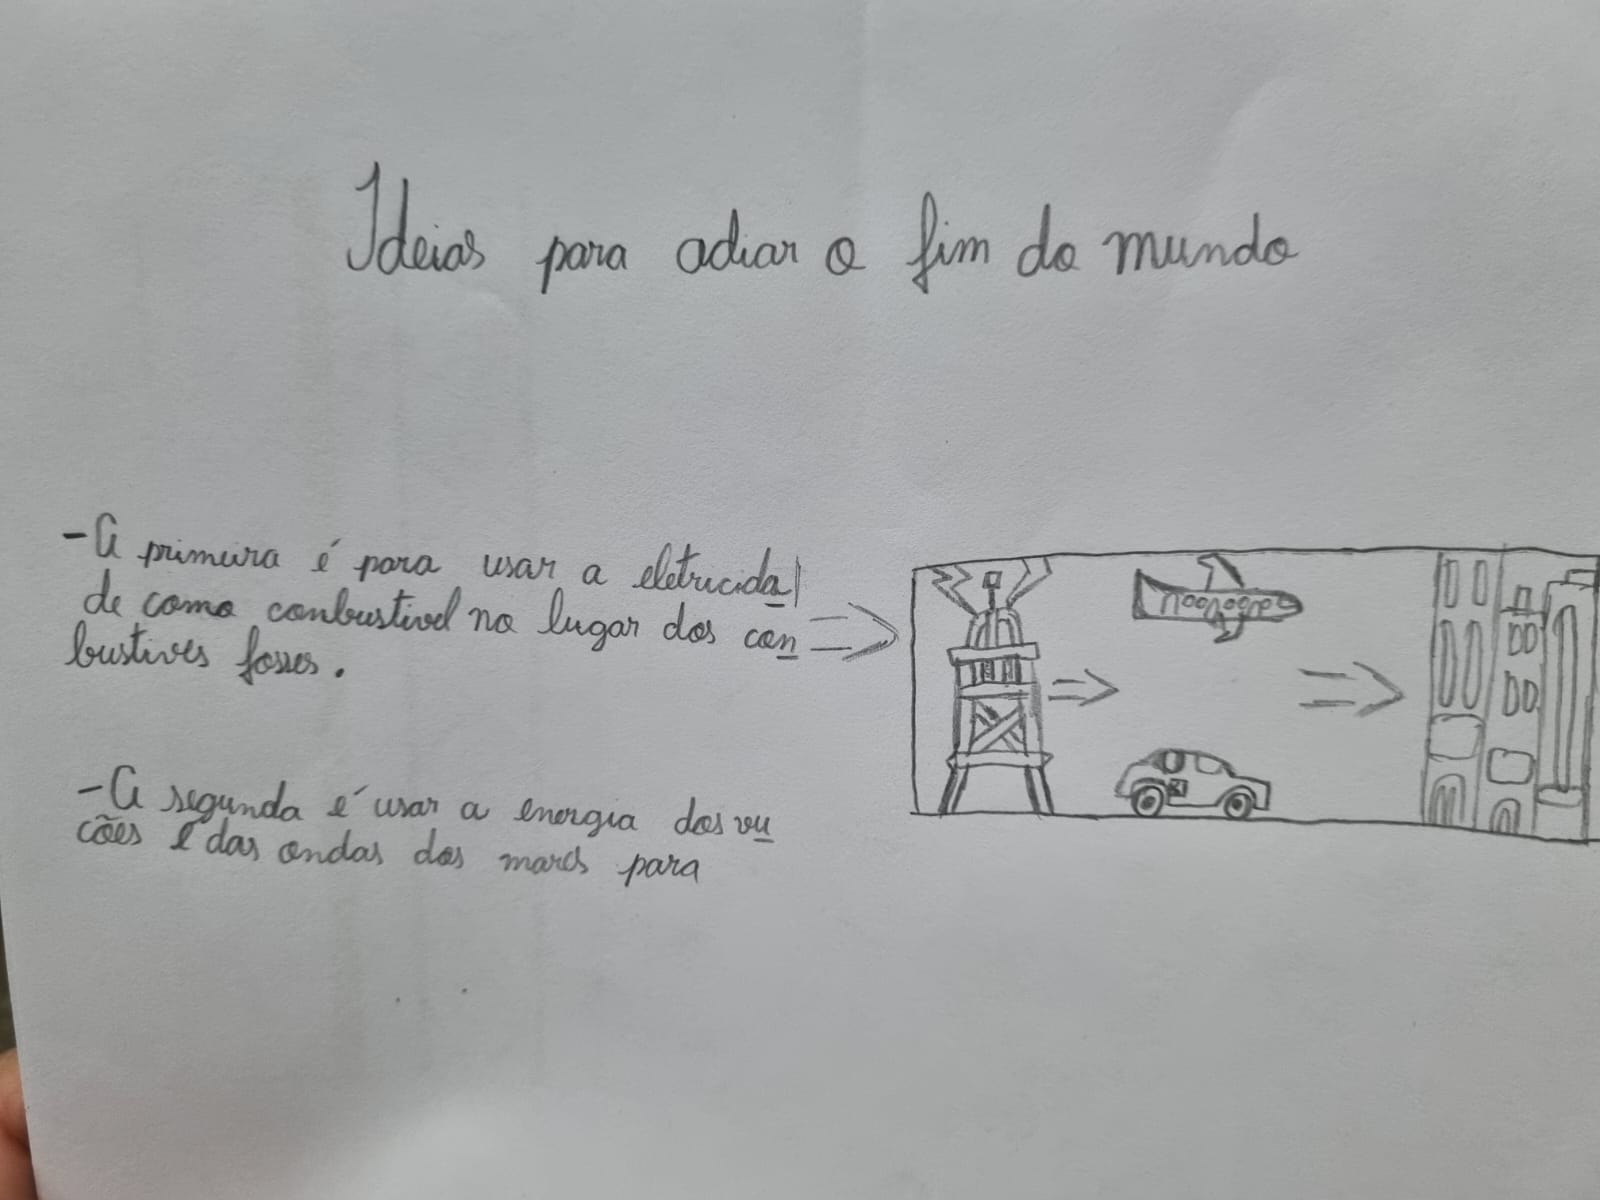 Ideias para adiar o fim do mundo
- A primeira é para usar a eletricida
de como conbustivel no lugar dos con
bustives fosses.
- A segunda é usar a energia dos vu
cões e das ondas dos mares para